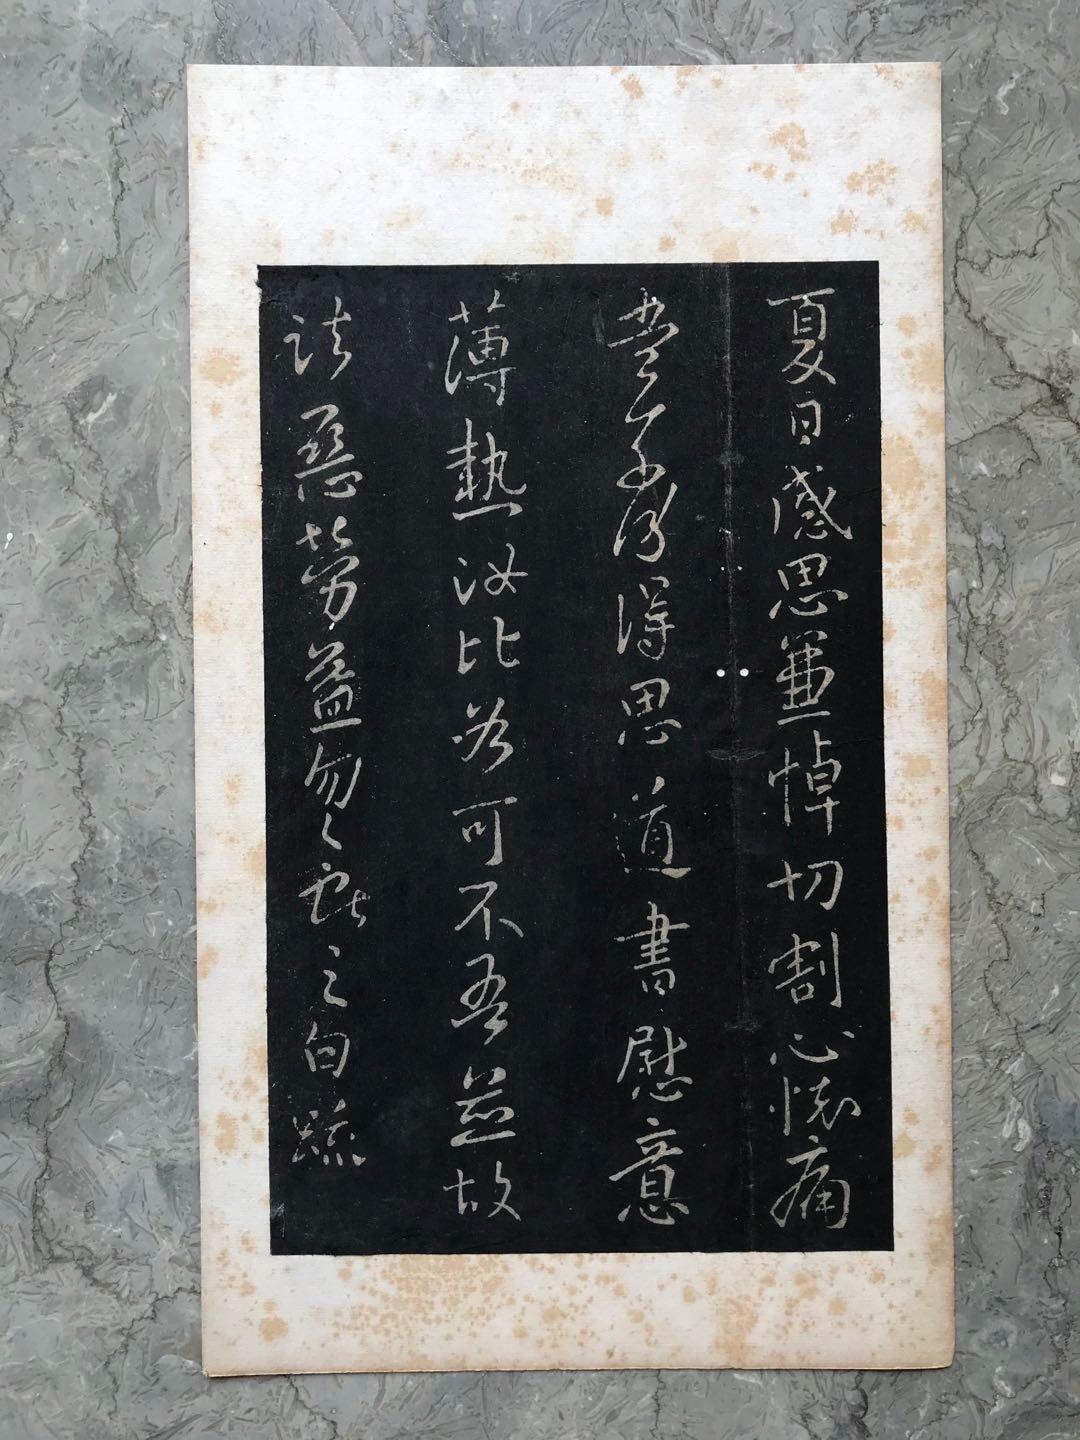 夏日感思兼悼切割心懷痛
當奈何得思道書慰意
薄熱汝比各可不吾並故
諸惡勞益勿勿獻之白疏